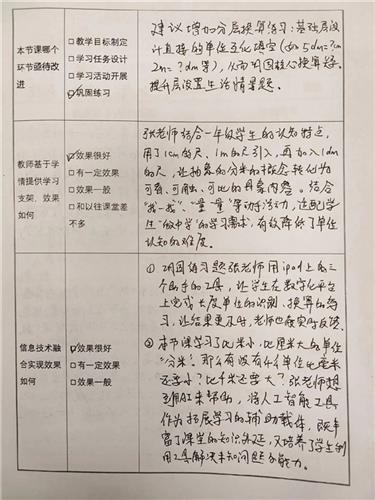 本节课哪个
环节亟待改
进
□教学目标制定
□学习任务设计
□学习活动开展
☑巩固练习
建议增加分层换算练习:基础层设
计直接的单位互化填空(如5dm=?cm
2m=?dm等),从而巩固核心换算
提升层设置生活情景题。
教师基于学
情提供学习
支架,效果
如何
☑效果很好
□有一定效果
□效果一般
□和以往课堂差
不多
张老师结合一年级学生的认知特点,
用了1cm的尺、1m的尺引入,再加入1dm
的尺,让抽象的分米的概念转化为
可看、可触、可比的具象内容。结合
"找一找"、"量一量"等动手活动,适配学
生"做中学"的学习需求,有效降低了单位
认知的难度。
信息技术融
合实现效果
如何
☑效果很好
□有一定效果
□效果一般
①巩固练习题张老师用ipad上的三
个助手的工具,让学生在数字化平台
上完成长度单位的识别、换算的练
习,让结果更及时,老师也在实时反馈。
②本节课学习了比米小,比厘米大的单位
"分米"。那么有没有什么单位比毫米
还要小?比千米还要大?张老师想
到用AI来帮助,将人工智能工具
作为拓展学习的辅助载体,既丰
富了课堂的知识外延,又培养了学生利
用工具解决未知问题的能力。